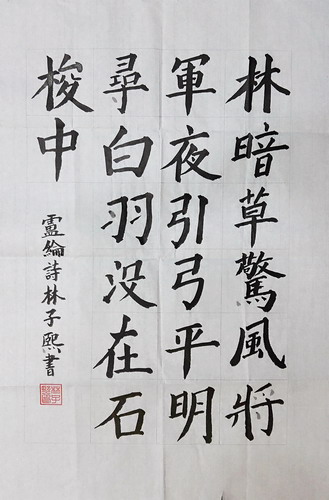 林暗草驚風將
軍夜引弓平明
尋白羽没在石
梭中
盧綸詩林子熙書